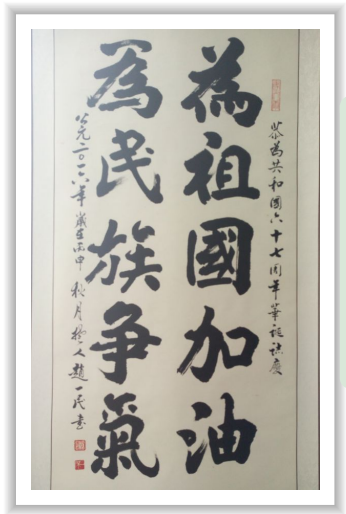 恭為共和國六十七周年華诞誌慶
為祖國加油
為民族争氣
公元二〇一六年歲在丙申秋月人趙一民書